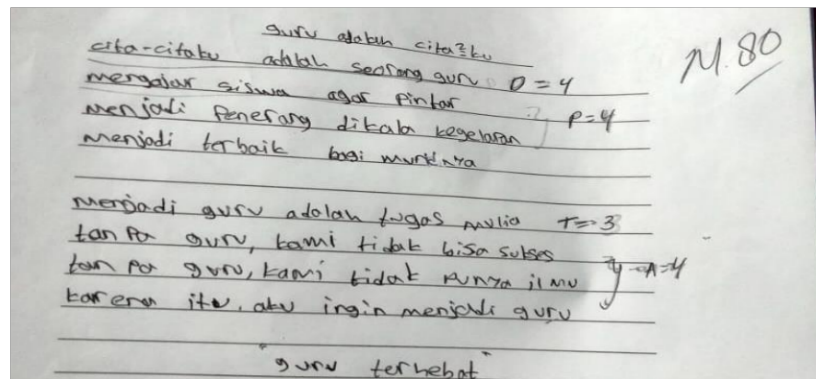 guru adalah cita²ku
cita-citaku adalah seorang guru D = 4
mengajar siswa agar pintar
menjadi penerang dikala kegelapan P = 4
menjadi terbaik bagi muridnya
N. 80
menjadi guru adalah tugas mulia T = 3
tanpa guru, kami tidak bisa sukses
tanpa guru, kami tidak punya ilmu A = 4
karena itu, aku ingin menjadi guru
"guru terhebat"